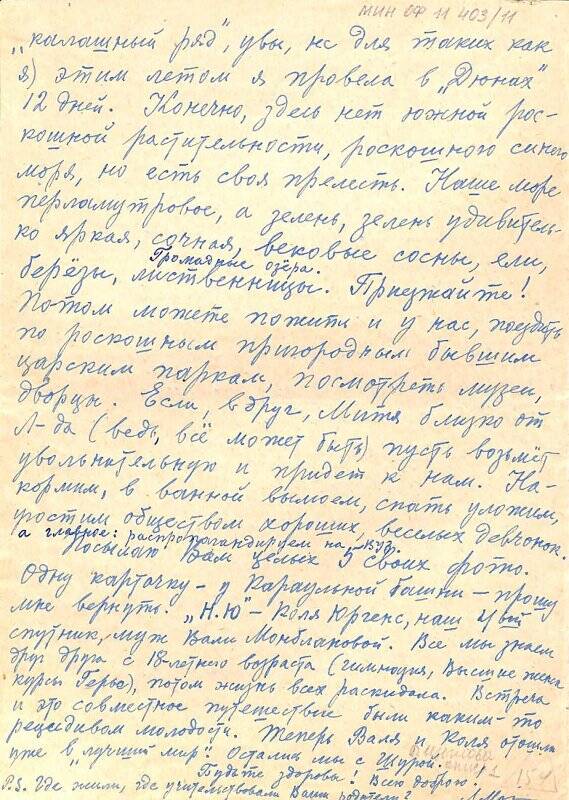 МИН ОФ 11 403/11
„калашный ряд", увы, не для таких как
я) этим летом я провела в „Дюнах"
12 дней. Конечно, здесь нет южной рос-
кошной растительности, роскошного синего
моря, но есть своя прелесть. Наше море
перламутровое, а зелень, зелень удивитель-
ко яркая, сочная, вековые сосны, ели,
Громадные озёра.
берёзы, лиственницы. Приезжайте!
Потом можете пожить и у нас, поездить
по роскошным пригородным бывшим
царским паркам, посмотреть музеи,
дворцы. Если, вдруг, Митя близко от
Л-да (ведь, всё может быть) пусть возьмёт
увольнительную и придет к нам. На-
кормим, в ванной вымоем, спать уложим,
угостим обществом хороших, веселых девчонок.
а главное: распропагандируем на
Посылаю Вам целых 3 своих фото.
Одну карточку - у Караульной башни - прошу
мне вернуть. „Н.Ю" - Коля Юргенс, наш
спутник, муж Вали Монблановой. Все мы знаем
друг друга с 18-летнего возраста (гимназия, Высшие жен
курсы Герье), потом жизнь всех раскидала. Встреча
и это совместное путешествие были каким-то
рецедивом молодости. Теперь Валя и Коля отошли
уже в „лучший мир". Остались мы с Шурой.
Будьте здоровы! Всего доброго!
P.S. Где жили, где учительствовали Ваши родители?